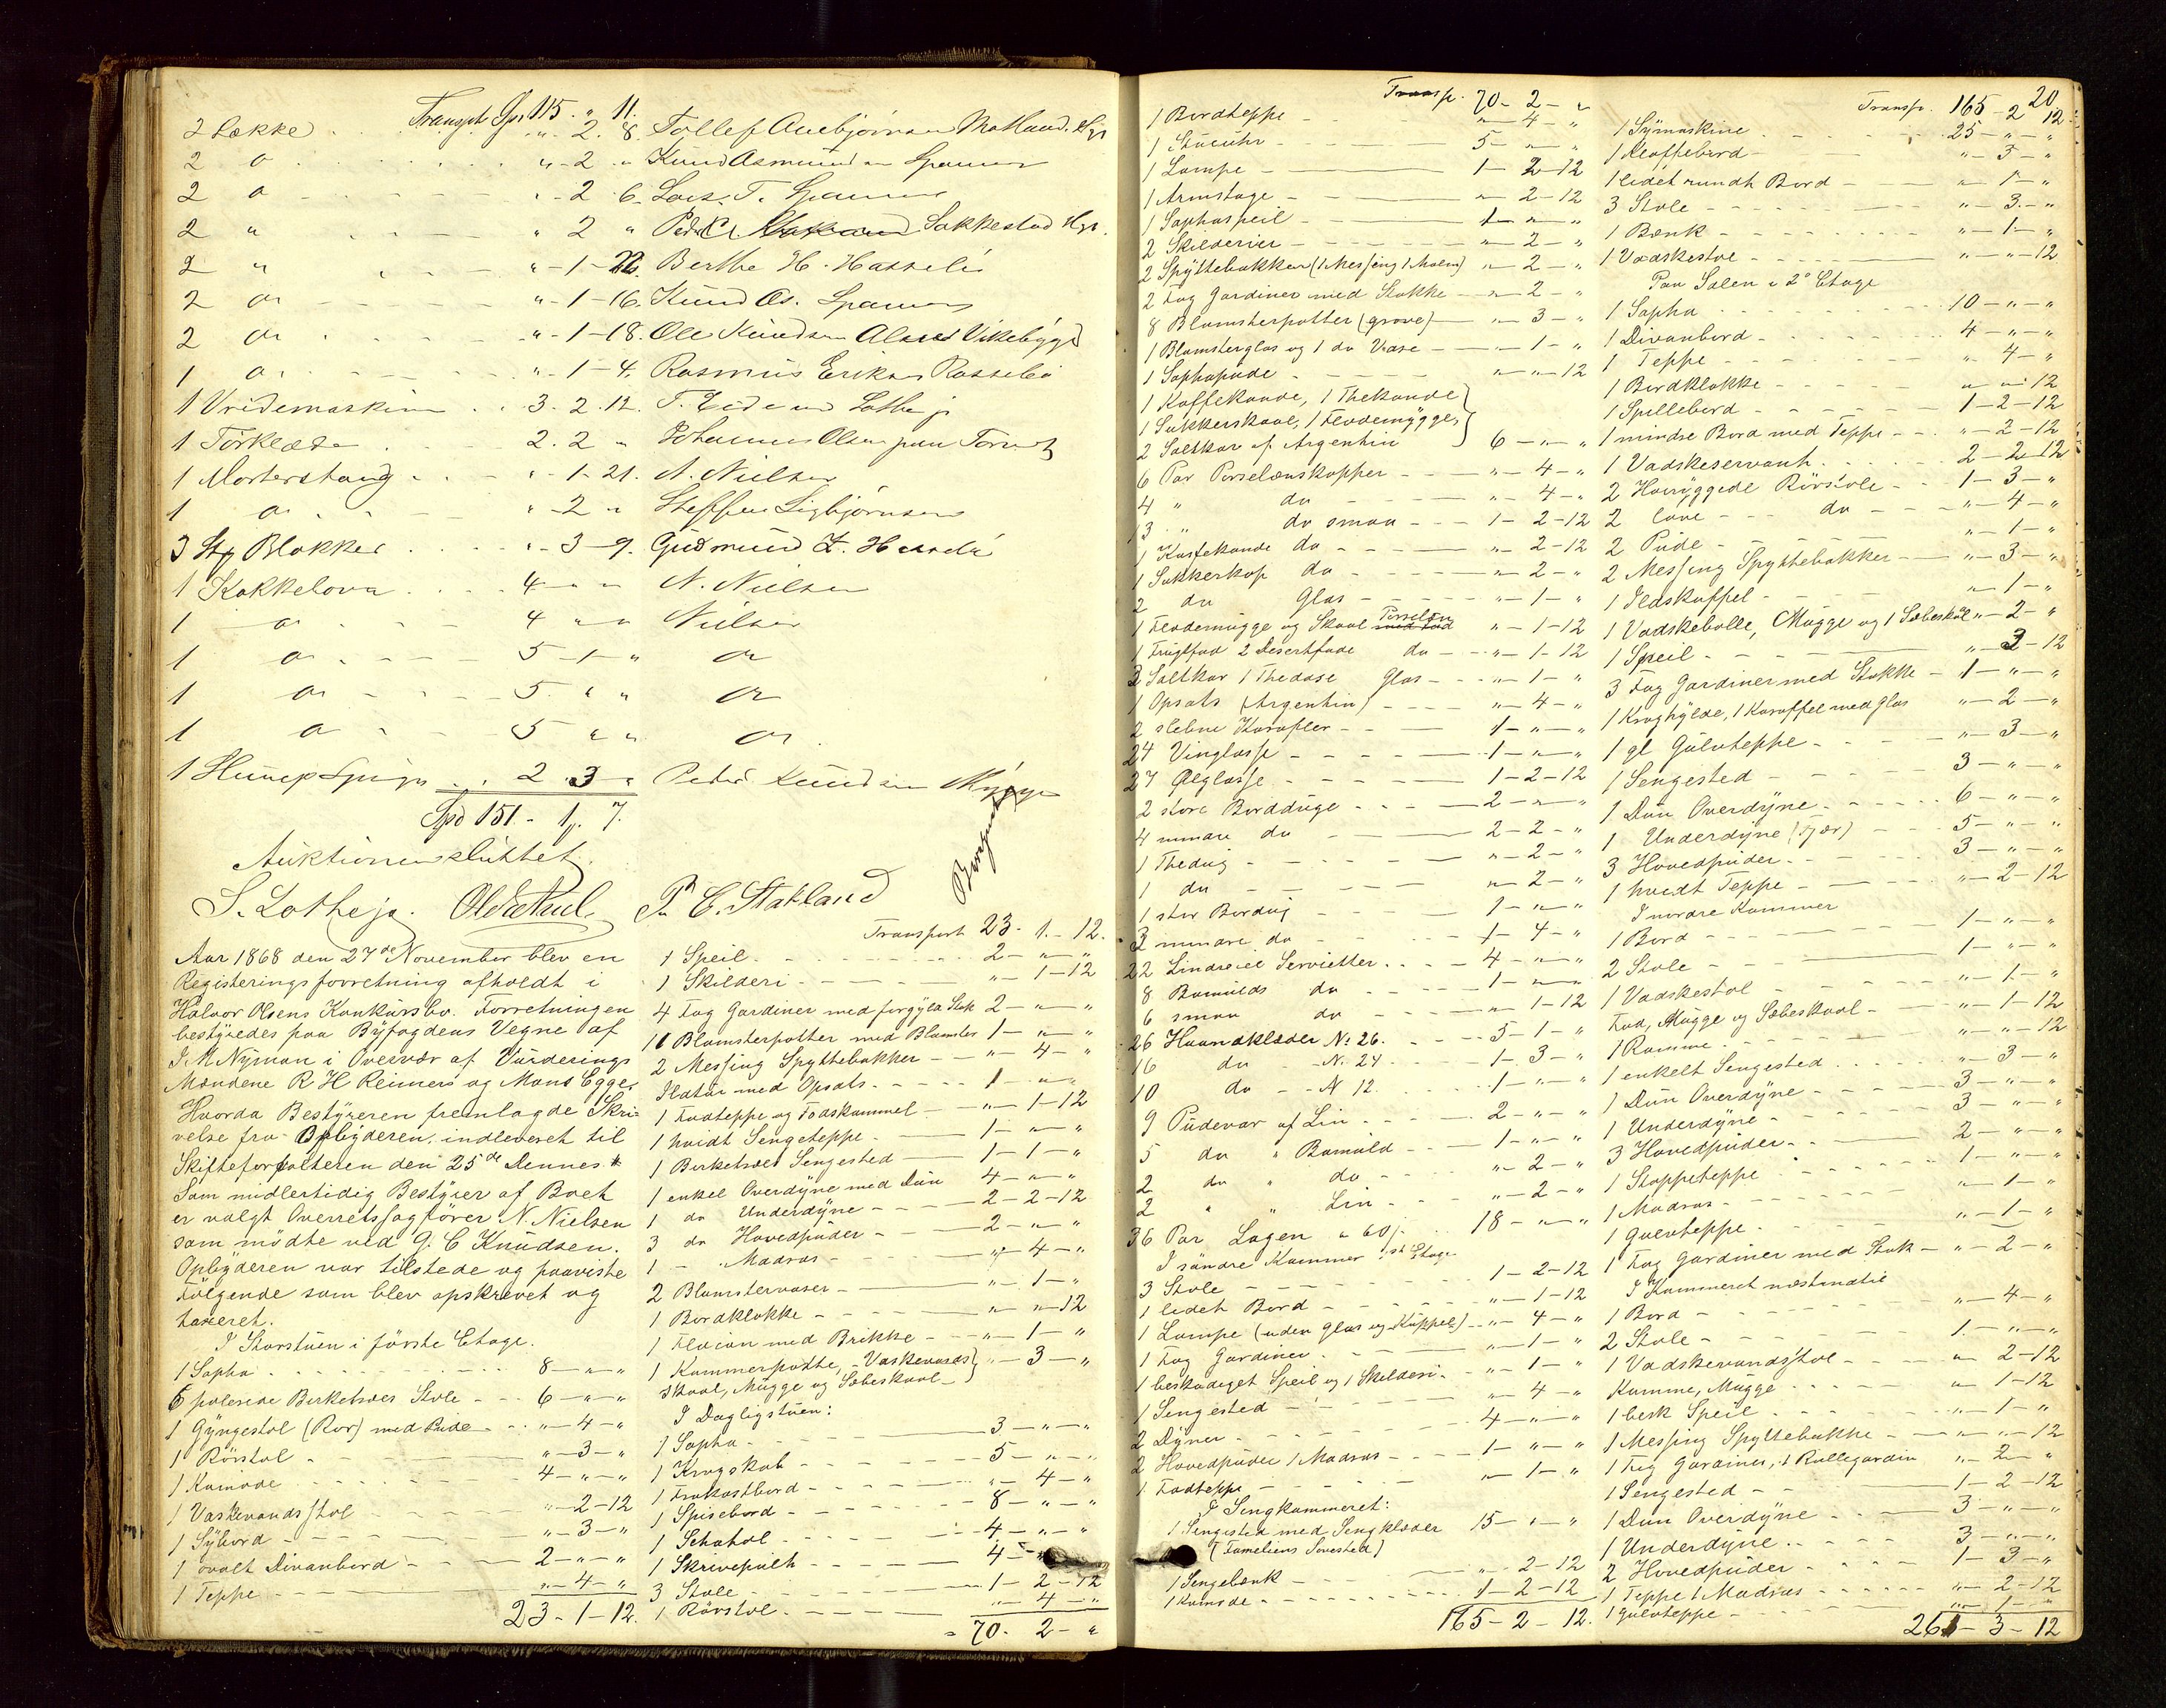 Transpt Spd 115 " 11.
2 Sække . . " 2. 8. Tollef Auebjörnsen Matland. Hgs
2 do " - 2 " Knud Asmundsen Spanne
2 do - 2 - 6. Lars. T. Spanne
2 " " 2 " Peder C. Sakkestad Hgs.
2 " " - 1 - 22. Berthe H. Hasseløe
2 do " - 1 - 16. Knud As. Spanne
2 do " - 1 - 18. Ole Knudsen Vikebygd
1 do " - 1 - 4. Rasmus Eriksen Rossebø
1 Vridemaskine . . 3. 2. 12. T. Eide Lothe jr
1 Törklæde 2. 2 " Johannes Olsen
1 Morterstang " - 1 - 21. N. Nielsen
1 do " - 2 " Steffen Sigbjørnsen
3 Stk Blokker . . " - 3 - 9. Gudmund
1 Kakkelovn . . 4 - " " N. Nielsen
1 do 4 " " Nielsen
1 do 5 - 1 - " do
1 do 5 . " " do
1 do 5 " " do
1 2. 3 " Peder Knudsen
Spd 151. - 1. 7.
Auktionen sluttet.
S. Lothe jr. P. C. Stakland
Aar 1868 den 27de November blev en
Registeringsforretning afholdt i
Halvor Olsens Konkursbo. Forretningen
bestyredes paa Byfogdens Vegne af
J. M Nyman i Overvær af Vurderings
Mændene R H Reimers og Mons Egge,
Hvorda Bestyreren fremlagde Skri-
velse fra Opbyderen indleveret til
Skifteforvalteren den 25de Dennes.
Som midlertidig Bestyrer af Boet
er valgt Overretssagförer N. Nielsen
som mödte ved G. C Knudsen.
Opbyderen var tilstede og paaviste
Fölgende som blev opskrevet og
taxeret.
I Storstuen i förste Etage.
1 Sopha 8 - " - "
6 polerede Birketræes Stole - - 6 - " - "
1 Gyngestol (Rör) med Pude - - " - 4 - "
1 Rörstol - " - 3 - "
1 Komode 4 - " - "
1 Vaskevandsstol " - 2 - 12
1 Sybord - " - 3 - "
1 ovalt Divanbord - 2 - " - "
1 Teppe - " - 4 - "
23 - 1 - 12.
Transport 23 - 1. - 12.
1 Speil 2 - " - "
1 Skilderi " - 1 - 12
4 Fag Gardiner med forgyldt Stok 2 - " - "
11 Blomsterpotter med Blomster 1 - " - "
2 Messing Spyttebakker - " - 4 - "
med Opsats - 1 - " - "
1 Fodteppe og Fodskammel - " - 1 - 12
1 hvidt Sengeteppe - 1 - " - "
1 Birketræes Sengested 1 - 1 - "
1 enkel Overdyne med Dun 4 - " - "
1 do Underdyne - 2 - 2 - 12
3 do Hovedpuder - 2 - " - "
1 - Madras - " - 4 - "
2 Blomstervaser - " - 1 - "
1 Bordklokke - " - " - 12
1 Flacon med Brikke - " - 1 - "
1 Kammerpotte, Vaskevands
skaal, Mugge og Sæbeskaal - } " - 3 - "
I Dagligstuen:
1 Sopha - 3 - " - "
1 Krogskab - 5 - " - "
1 Frokostbord - " - 4 - "
1 Spisebord - 8 - " - "
1 Schatol - 4 - " - "
1 Skrivepult 4 -
3 Stole - 1 - 2 - 12
1 Rörstol - " - 4 - "
70 - 2 - "
Transp. 70 - 2 - "
1 Bordteppe " - 4 - "
1 Stueuhr 5 - " - "
1 Lampe 1 - 2 - 12
1 Armstage " - 2 - 12
1 Sophaspeil 1 - " - "
2 Skilderier " - 2 - "
2 Spyttebakker (1 Messing 1 Malm) " - 2 - "
2 Fag Gardiner med Stokke " - 2 - "
8 Blomsterpotter (grove) " - 3 - "
1 Blomsterglas og 1 do Vase " - 1 - "
1 Sophapude " - " - 12
1 Kaffekande, 1 Thekande
1 Sukkerskaal, 1 Flödemugge,
2 Saltkar af Argentin } 6 - " - "
6 Par Porselænskopper " - 4 - "
4 " do " - 4 - "
13 " do smaa 1 - 2 - 12
1 Kaffekande do " - 2 - 12
1 Sukkerkop do " - 2 - "
2 do Glas " - 1 - "
1 Flödemugge og Skaal Porselæn " - 1 - 12
1 Frugtfad 2 Desertfade do " - 1 - 12
3 Saltkar 1 Thedase Glas " - 1 - "
1 Opsats (Argentin) " - 4 - "
2 slebne Karafler 1 - " - "
24 Vinglasse 1 - " - "
27 Ølglasse 1 - 2 - 12
2 store Bordduge 2 - " - "
4 mindre do 2 - 2 - "
1 Thedug " - 2 - "
1 do " - 2 - "
1 stor Bordug 1 - " - "
3 mindre do 1 - 4 - "
22 Servietter 4 - " - "
8 Bomulds do 1 - " - "
6 smaa do " - 1 - 12
26 Haandklæder No 26. 5 - 1 - "
16 do - No 24 1 - 3 - "
10 do - N 12 1 - " - "
9 Pudevar af Lin 2 - " - "
5 do " Bomuld 1 - " - "
2 do " do " - 2 - "
2 " " Lin " - 2 - "
36 Par Lagen a 60 18 - " - "
I söndre Kammer 1st Etage
3 Stole 1 - 2 - 12
1 lidet Bord " - 1 - 12
1 Lampe (uden Glas og Kuppel) " - 4 - "
1 Fag Gardiner " - 1 - "
1 beskadiget Speil og 1 Skilderi " - 1 - "
1 Sengested " - 4 - "
2 Dyner 4 - " - "
2 Hovedpuder 1 Madras 1 - " - "
1 Fodteppe " - 1 - "
I Sengkammeret:
1 Sengested med Sengklæder 15 - " - "
(Fameliens Sovested)
1 Sengebænk " - 2 - 12
1 Komode 1 - 2 - 12
165 - 2 - 12.
20
Transp. 165 - 2 12
1 Symaskine 25 - " - "
1 Klaffebord " - 3 - "
1 lidet rundt Bord " - 1 - "
3 Stole " - 3 - "
1 Bænk " - 1 - "
1 Vaskestol " - " - 12
Paa Salen i 2° Etage
1 Sopha 10 - " - "
1 Divanbord 4 - " - "
1 Teppe " - 4 - "
1 Bordklokke " - " - 12
1 Spillebord 1 - 2 - 12
1 mindre Bord med Teppe " - 2 - 12
1 Vadskeservant 2 - 2 - 12
2 Höiryggede Rörstole 1 - 3 - "
2 lave do " - 4 - "
2 Pude " - 1 - "
2 Messing Spyttebakker " - 3 - "
1 Ildskuffel " - 1 - "
1 Vadskebolle, Mugge og 1 Sæbeskål " - 2 - "
1 Speil " - 3 - 12
3 Fag Gardiner med Stokke 1 - " - "
1 Kroghylde, 1 Karaffel med Glas " - 2 - "
1 gl Gulvteppe " - 3 - "
1 Sengested 3 - " - "
1 Dun Overdyne 6 - " - "
1 Underdyne (Fjær) 5 - " - "
3 Hovedpuder 3 - " - "
1 hvidt Teppe " - 2 - 12
I nordre Kammer
1 Bord 1 - " - "
2 Stole 1 - " - "
1 Vadskestol " - 1 - "
Fad, Mugge og Sæbeskaal " - 1 - 12
1 Ramme " - " - 12
1 enkelt Sengested " - 3 - "
1 Dun Overdyne 3 - " - "
1 Underdyne 3 - " - "
3 Hovedpuder 2 - " - "
1 Stoppeteppe 1 - " - "
1 Madras " - 1 - "
1 Gulvteppe " - 1 - "
1 Fag Gardiner med Stok " - 2 - "
I Kammeret
1 Bord " - 4 - "
2 Stole 1 - " - "
1 Vadskevandsstol " - 2 - 12
Kumme, Mugge " - 1 - 12
1 besk Speil " - 1 - "
1 Messing Spyttebakke " - " - 12
1 Fag Gardiner, 1 Rullegardin " - 2 - "
1 Sengested 1 - 2 - 12
1 Dun Overdyne 3 - " - "
1 Underdyne 3 - " - "
2 Hovedpuder 1 - 3 - "
1 Teppe 1 Madras " - 2 - 12
1 Gulvteppe " - 1 - "
261 - 3 - 12